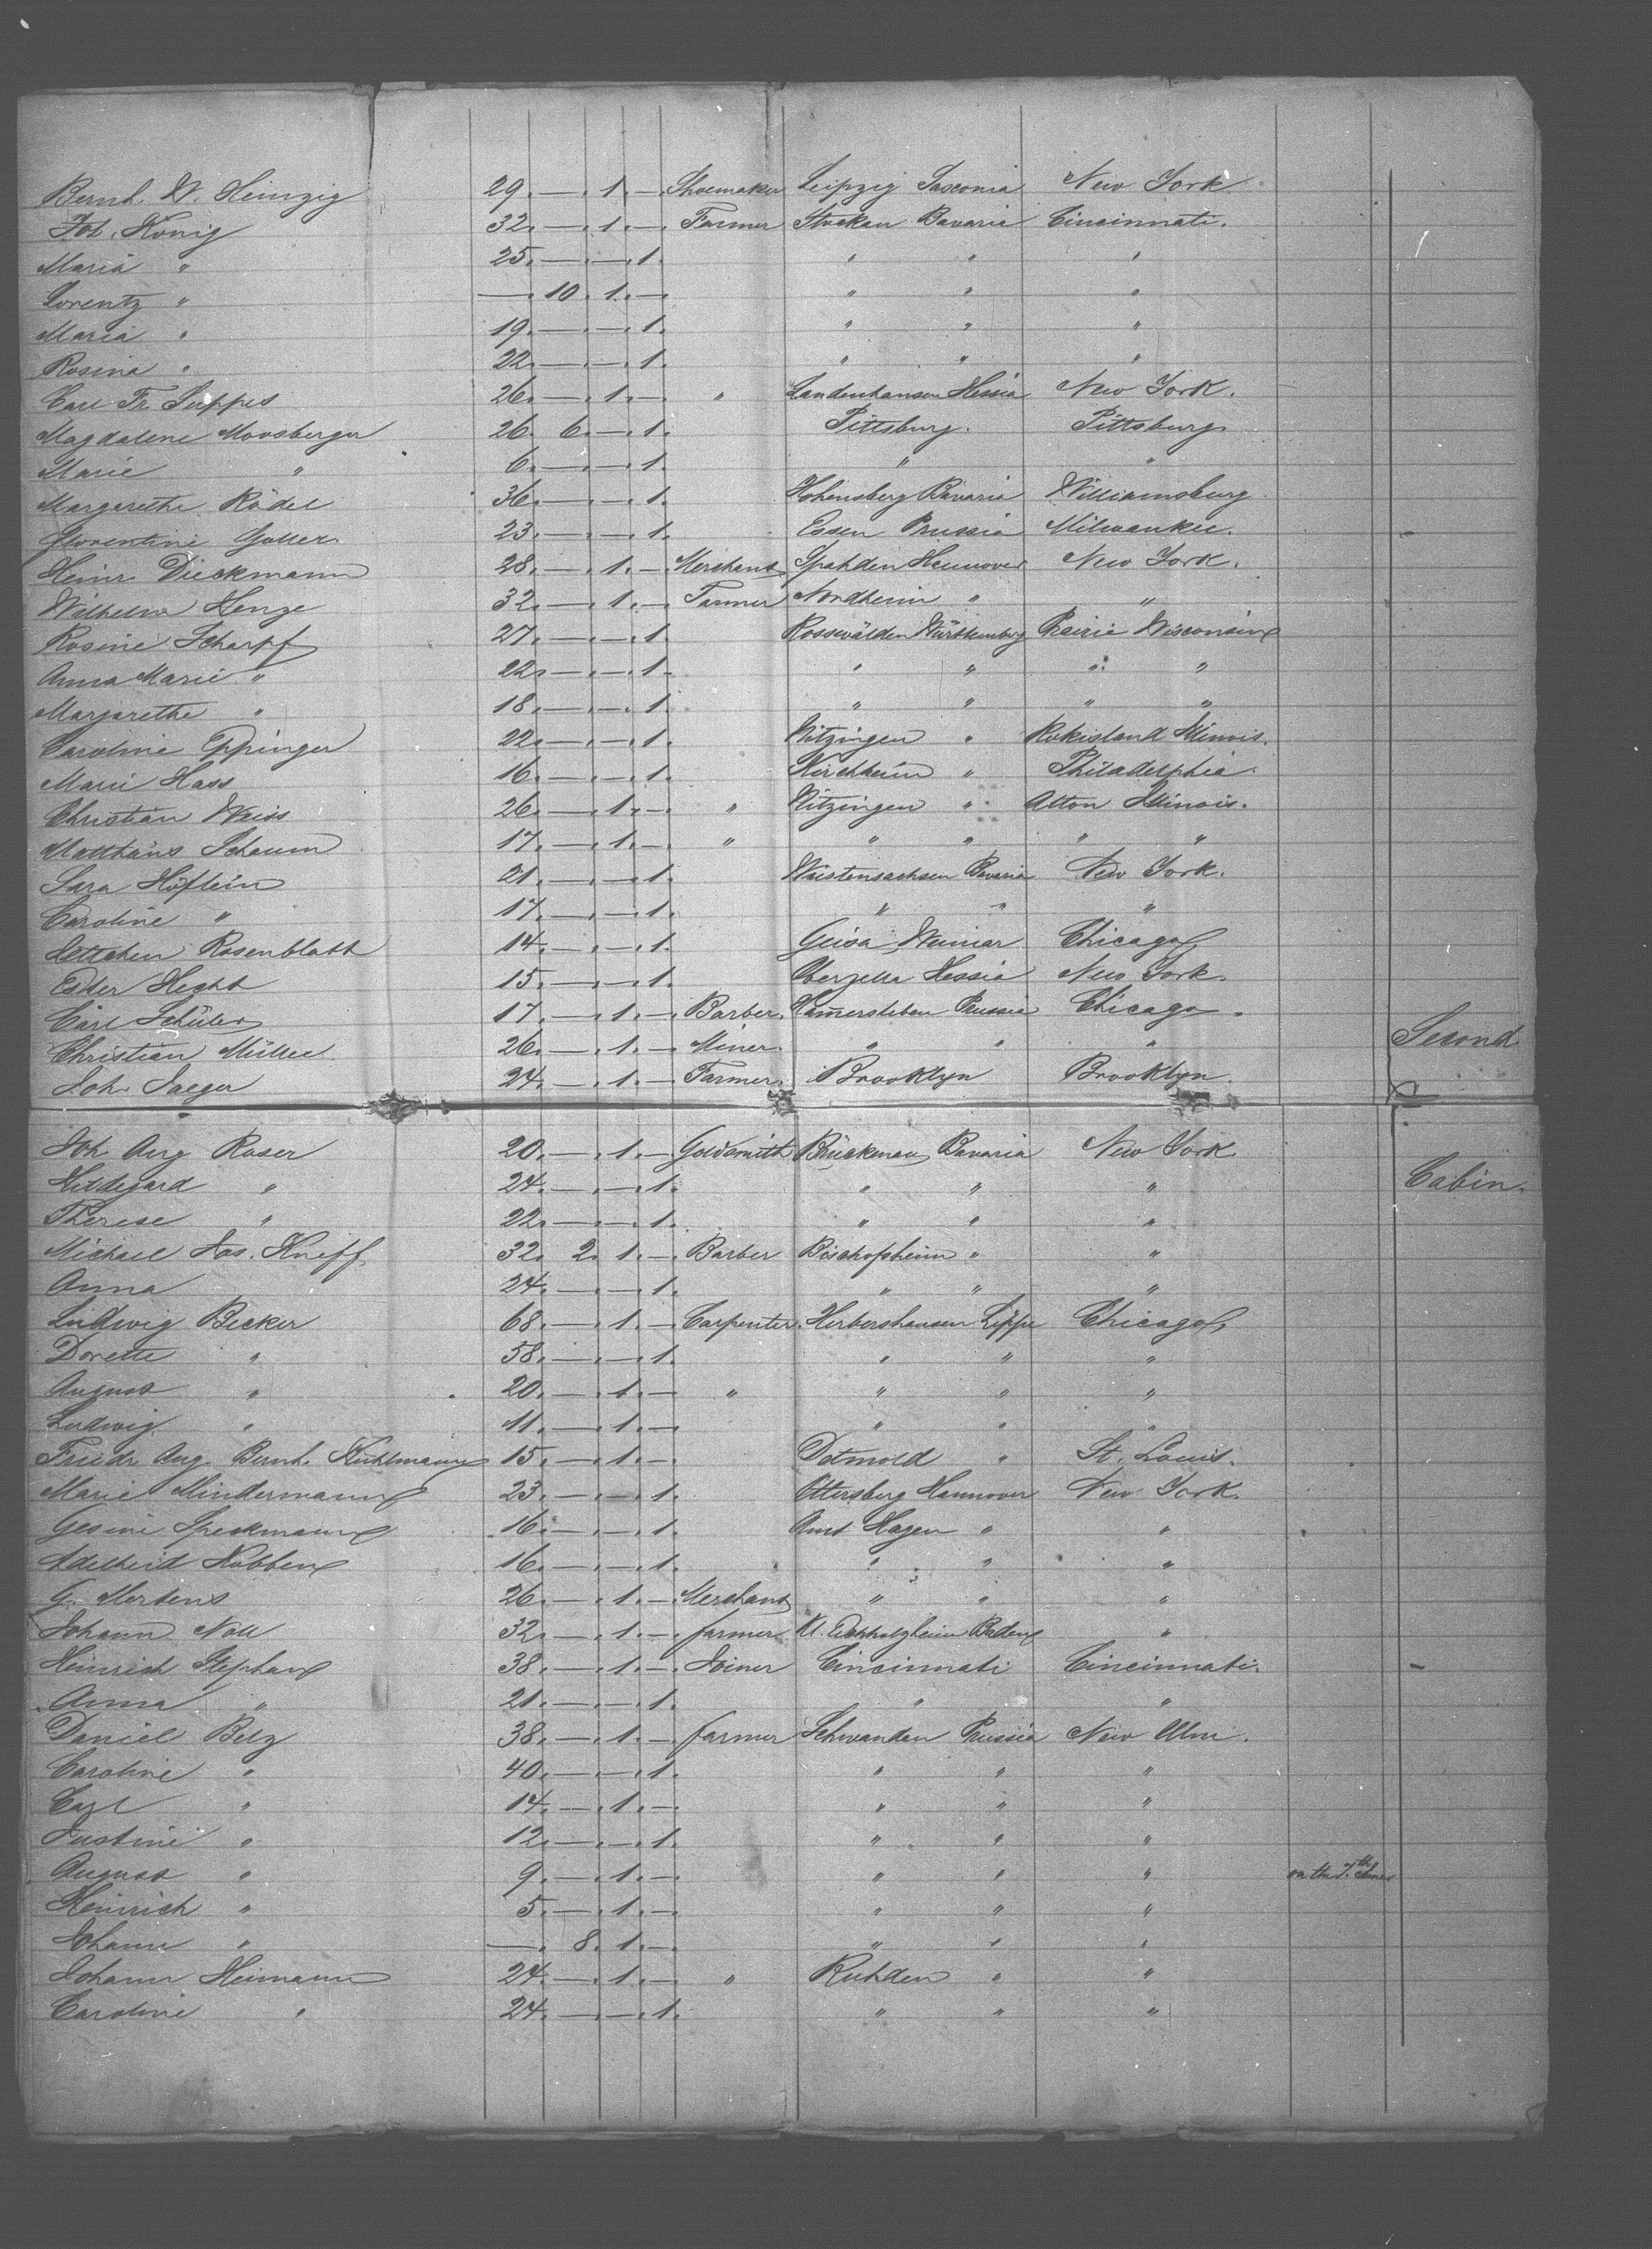 Bernh. W. Heinzig 29. — . 1. — . Shoemaker Leipzig Saxonia New York
Joh. König 32. — . 1. — . Farmer Stockau Bavaria Cincinnati.
Maria " 25. — . — . 1. " " "
Lorentz " — . 10. 1. — . " " "
Maria " 19. — . — . 1. " " "
Rosina " 22. — . — . 1. " " "
Carl Fr. Suppes 26. — . 1. — . " Landenhausen Hessia New York.
Magdalene Moosberger 26. 6. — . 1. Pittsburg. Pittsburg.
Marie " 6. — . — . 1. " "
Margarethe Rödel 36. — . — . 1. Hohensberg Bavaria Williamsburg
Florentine 23. — . — . 1. Essen Prussia Milwaukee.
Heinr. Dieckmann 28. — . 1. — . Merchant Spahden Hannover New York.
Wilhelm Henze 32. — . 1. — . Farmer Nordheim " "
Rosine Scharpf 27. — . — . 1. Rosswälden Württemberg Prairie Wisconsin
Anna Marie " 22. — . — . 1. " " " "
Margarethe " 18. — . — . 1. " " " "
Caroline Eppinger 22. — . — . 1. " Rokisland Illinois.
Marie Hass 16. — . — . 1. Kirchheim " Philadelphia.
Christian Weiss 26. — . 1. — . " " Alton Illinois.
Matthäus Schaum 17. — . 1. — . " " " " "
Sara Höflein 21. — . — . 1. Wüstensachsen Bavaria New York.
Caroline " 17. — . — . 1. " " "
Jettchen Rosenblatt 14. — . — . 1. Geisa Weimar Chicago
Ester Hecht 15. — . — . 1. Hessia New York.
Carl Schüler 17. — . 1. — . Barber. Hamersleben Prussia Chicago.
Christian Müller 26. — . 1. — . Miner. " " " Second
Joh. Jaeger 24. — . 1. — . Farmer. Brooklyn Brooklyn.
Joh Aug Roser 20. — . 1. — . Goldsmith Brückenau Bavaria New York
Hildegard " 24. — . — . 1. " " " Cabin.
Therese " 22. — . — . 1. " " "
Michael Jos. Kneff 32. 2. 1. — . Barber Bischofsheim " "
Anna 24. — . — . 1. " " "
Ludwig Becker 68. — . 1. — . Carpenter. Lippe Chicago,
Dorette " 58. — . — . 1. " " "
August " 20. — . 1. — . " " " "
Ludwig " 11. — . 1. — . " " "
Friedr. Aug. Bernh. Kuhlmann 15. — . 1. — . Detmold " St. Louis.
Marie Mindermann 23. — . — . 1. Ottersberg Hannover New York.
Gesine Speckmann 16. — . — . 1. Amt Hagen " "
Adelheid Nobben 16. — . — . 1. " " "
G. Mertens 26. — . 1. — . Merchant " " "
Johann Noll 32. — . 1. — . farmer Kl. Eichholzheim Baden "
Heinrich Stephan 38. — . 1. — . Joiner Cincinnati Cincinnati.
Anna " 21. — . — . 1. " "
Daniel Belz 38. — . 1. — . farmer Schwandau Prussia New Ulm.
Caroline " 40. — . — . 1. " " "
Carl " 14. — . 1. — . " " "
Justine " 12. — . — . 1. " " "
August " 9. — . 1. — . " " " on the 7.th
Heinrich " 5. — . 1. — . " " "
Johann " — . 8. 1. — . " " "
Johann Heimann 24. — . 1. — . " Ruhden " "
Caroline " 24. — . — . 1. " " "